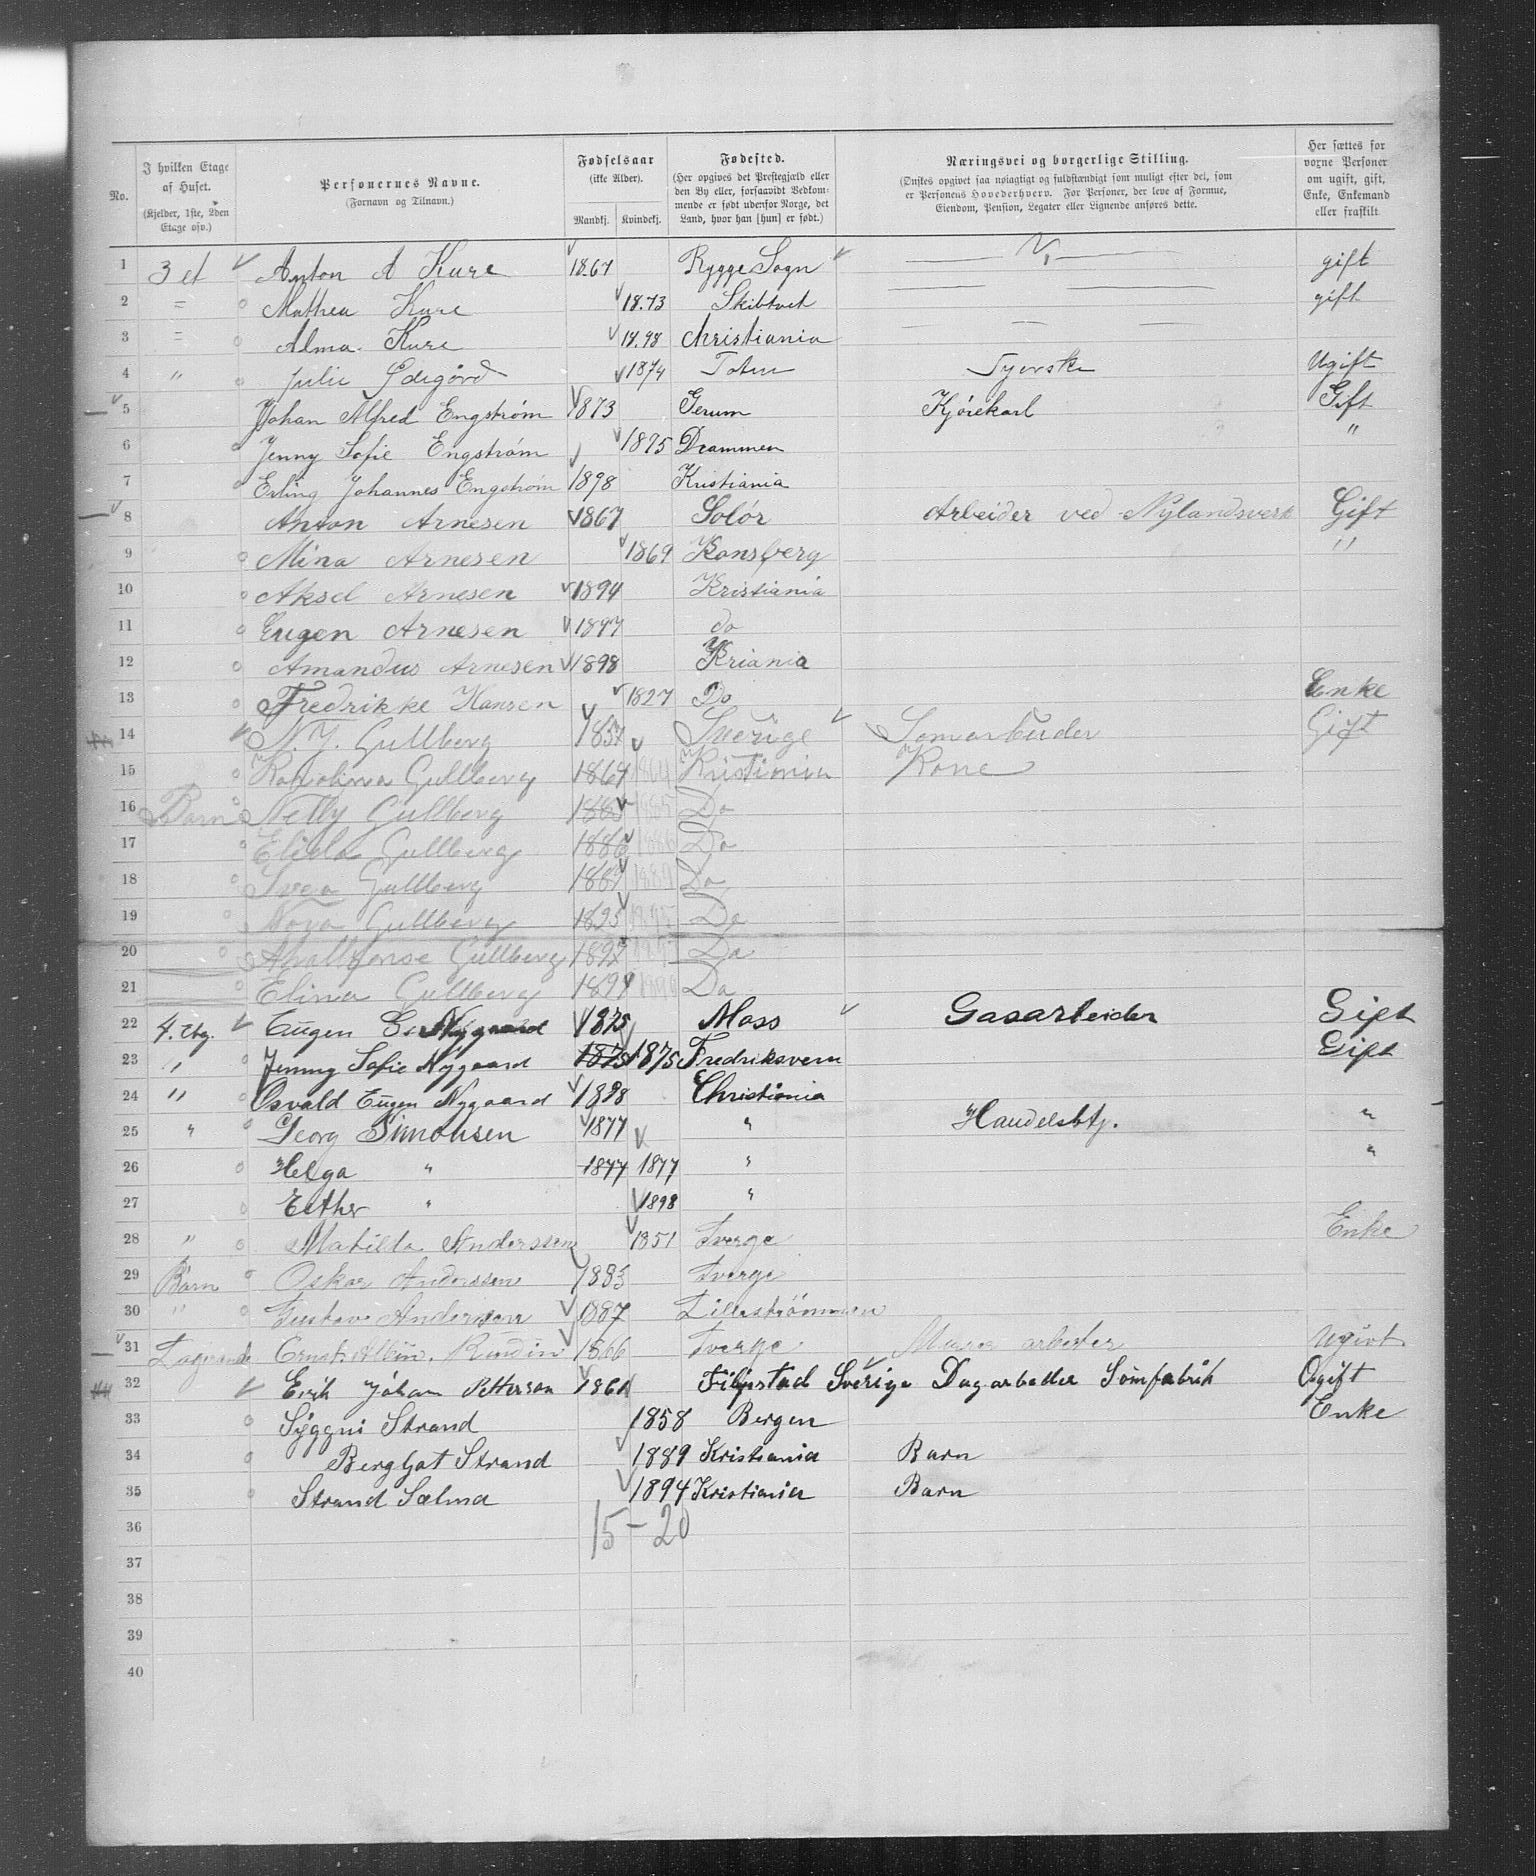 No. | I hvilken Etage af Huset. (Kjelder, 1ste, 2den Etage osv.) | Personernes Navne. (Fornavn og Tilnavn.) | Fødselsaar (ikke Alder). Mandkj. Kvindekj. | Fødested. (Her opgives det Prestegjæld eller den By eller, forsaavidt Vedkommende er født udenfor Norge, det Land, hvor han [hun] er født.) | Næringsvei og borgerlige Stilling. (Ønskes opgivet saa nøiagtigt og fuldstændigt som muligt efter del, som er Personens Hovederhverv. For Personer, der leve af Formue, Eiendom, Pension, Legater eller Lignende anføres dette. | Her sættes for voxne Personer om ugift, gift, Enke, Enkemand eller fraskilt
1 3 et Anton A Kure 1867 Rygge Sogn gift
2 = Mathea Kure 1873 Skibtvet gift
3 = Alma Kure 1898 Christiania
4 " Julie Ødegård 1874 Toten Syerske Ugift
5 Johan Alfred Engstrøm 1873 Gerum Kjørekarl Gift
6 Jenny Sofie Engstrøm 1875 Drammen "
7 Erling Johannes Engstrøm 1898 Kristiania
8 Anton Arnesen 1867 Solør Arbeider ved Nylandsverk Gift
9 Mina Arnesen 1869 Konsberg "
10 Aksel Arnesen 1894 Kristiania
11 Eugen Arnesen 1897 do
12 Amandus Arnesen 1898 Kriania
13 Fredrikke Hansen 1827 Do Enke
14 N. J. Gullberg 1857 Sverige Sømarbeider Gift
15 Karolina Gullberg 1864 1864 Kristiania Kone
16 Barn Nelly Gullberg 1885 1885 Do
17 Elida Gullberg 1886 1886 Do
18 Svea Gullberg 1889 1889 Do
19 Nora Gullberg 1895 1895 Do
20 Gullberg 1897 Do
21 Elina Gullberg 1899 Do
22 4. Etg. Eugen Nygaard 1875 Moss Gasarbeider Gift
23 " Jenny Sofie Nygaard 1875 1875 Fredriksvern Gift
24 " Osvald Eugen Nygaard 1898 Christiania
25 " Georg Simonsen 1877 " Handelsbtj. "
26 Helga " 1877 1877 " "
27 Esther " 1898 "
28 " Matilda Anderssen 1851 Sverge Enke
29 Barn Oskar Anderssen 1883 Sverge
30 " Gustav Anderssen 1887 Lillestrømmen
31 Logerande Ernst Albin Rundin 1866 Sverge Murer arbeiter Ugivt
32 Erik Johan Petterson 1861 Filipstad Sverige Dagarbeider Sömfabrik Ogift
33 Syggni Strand 1858 Bergen Enke
34 Bergljot Strand 1889 Kristiania Barn
35 Strand Selma 1894 Kristiania Barn
36
15 - 20
37
38
39
40